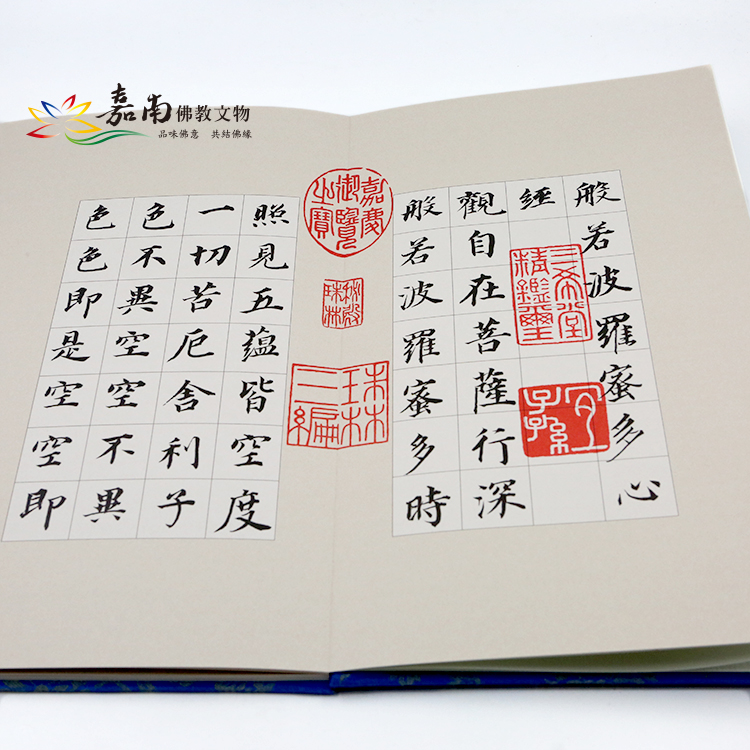 嘉南佛教文物
品味佛意 共結佛緣
般若波羅蜜多心
經
三希堂
精鑑璽
宜子孫
觀自在菩薩行深
般若波羅蜜多時
嘉慶
御覽
之寶
秘殿
珠林
珠林
三編
照見五蘊皆空度
一切苦厄舍利子
色不異空空不異
色色即是空空即